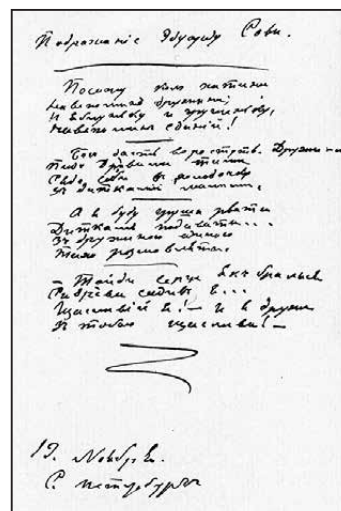 Подражаніе Эдуарду Сови.
Посажу коло хатини
На вспомин дружинi
И яблуньку и грушеньку,
На вспомин единiй!
Бог дасть виростуть. Дружина
Під древами тими
Сяде собі в холодочку
З дітками малими.
А я буду груші рвати
Діткам подавати...
З дружиною единою
Тихо розмовляти.
— Тойді серце як бралися
Сі древа садив я...
Щасливий я! — И я друже
З тобою щаслива! —
19. Ноября.
С. Петербургъ